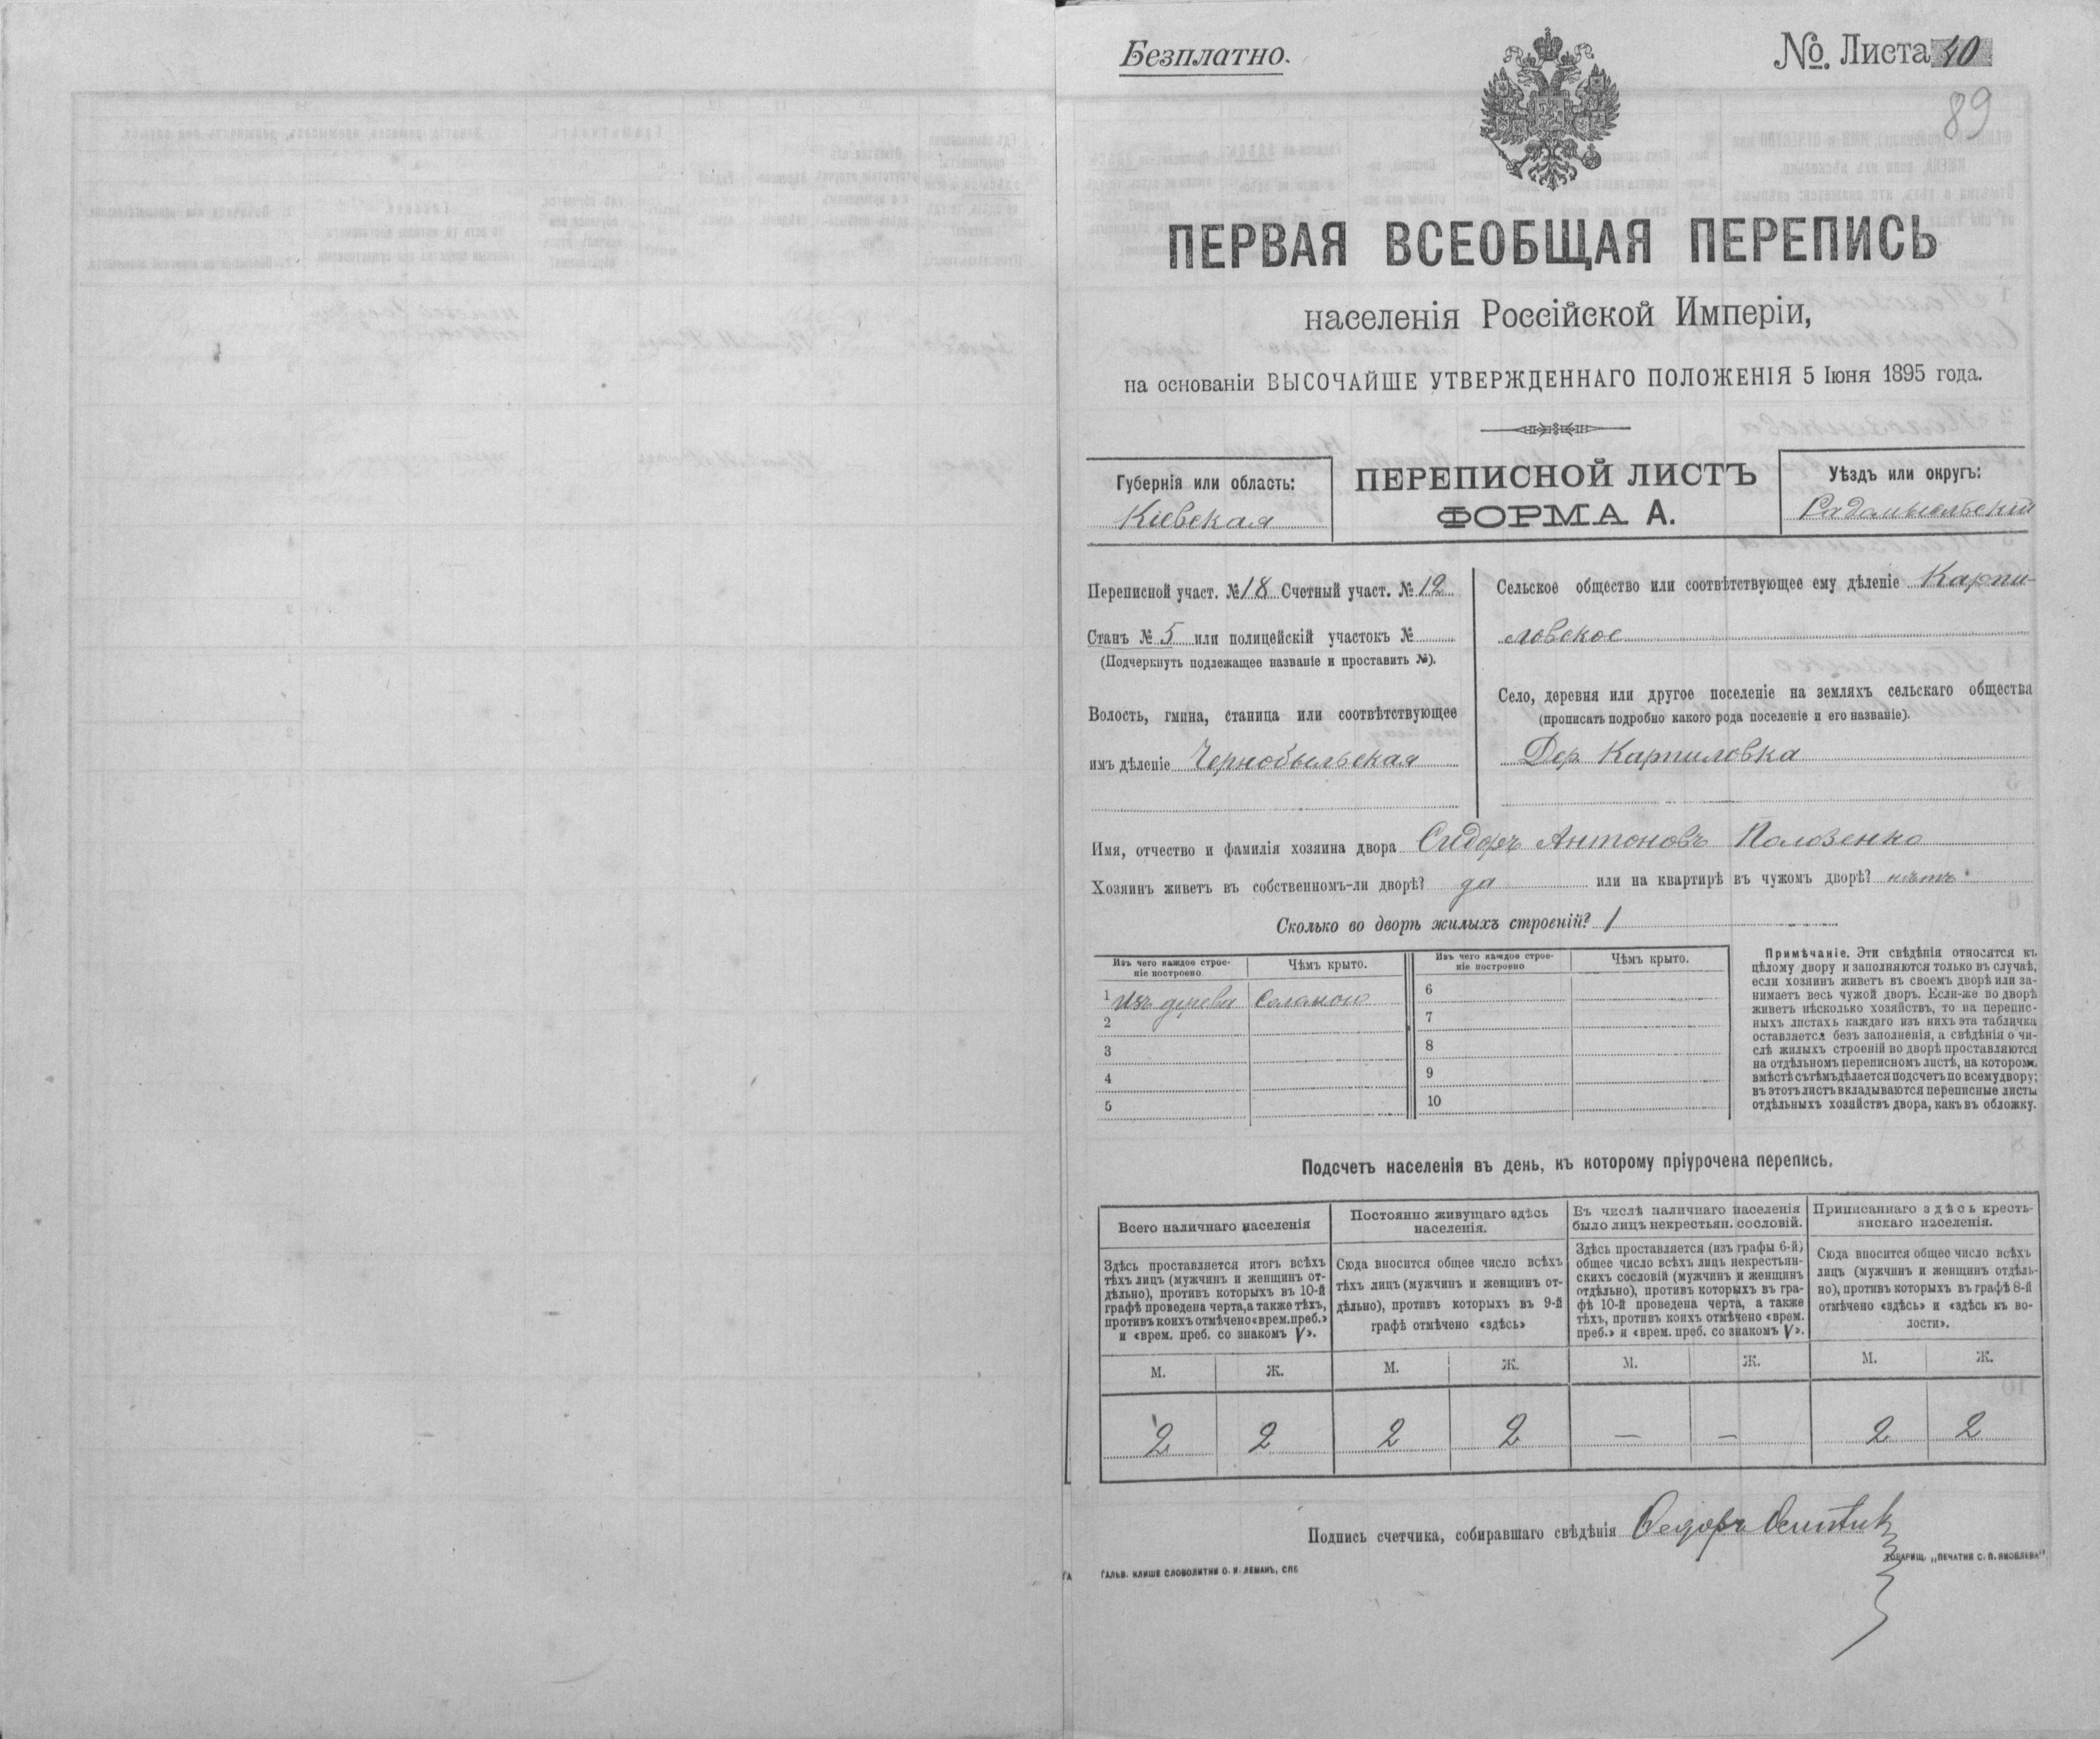 Безплатно.
№ Листа 40
89
ПЕРВАЯ ВСЕОБЩАЯ ПЕРЕПИСЬ
населенія Россійской Имперіи,
на основаніи ВЫСОЧАЙШЕ УТВЕРЖДЕННАГО ПОЛОЖЕНІЯ 5 Іюня 1895 года.
Губернія или область:
Кіевская
ПЕРЕПИСНОЙ ЛИСТЪ
ФОРМА А.
Уѣздъ или округъ:
Радомысльскій
Переписной участ. № 18 Счетный участ. № 12
Станъ № 5 или полицейскій участокъ №
(Подчеркнуть подлежащее названіе и проставить №).
Волость, гмина, станица или соотвѣтствующее
имъ дѣленіе Чернобыльская
Сельское общество или соотвѣтствующее ему дѣленіе Карпи-
ловское
Село, деревня или другое поселеніе на земляхъ сельскаго общества
(прописать подробно какого рода поселеніе и его названіе).
Дер. Карпиловка
Имя, отчество и фамилія хозяина двора Сидоръ Антоновъ Полозенко
Хозяинъ живетъ въ собственномъ-ли дворѣ? да или на квартирѣ въ чужомъ дворѣ? нѣтъ
Сколько во дворѣ жилыхъ строеній? 1
Изъ чего каждое строе-
ніе построено
Чѣмъ крыто.
Изъ чего каждое строе-
ніе построено
Чѣмъ крыто.
1 Изъ дерева Соломою
2
3
4
5
6
7
8
9
10
Примѣчаніе. Эти свѣдѣнія относятся къ
цѣлому двору и заполняются только въ случаѣ,
если хозяинъ живетъ въ своемъ дворѣ или за-
нимаетъ весь чужой дворъ. Если-же во дворѣ
живетъ нѣсколько хозяйствъ, то на перепис-
ныхъ листахъ каждаго изъ нихъ эта табличка
оставляется безъ заполненія, а свѣдѣнія о чи-
слѣ жилыхъ строеній во дворѣ проставляются
на отдѣльномъ переписномъ листѣ, на которомъ
вмѣстѣ съ тѣмъ дѣлается подсчетъ по всему двору;
въ этотъ листъ вкладываются переписные листы
отдѣльныхъ хозяйствъ двора, какъ въ обложку.
Подсчетъ населенія въ день, къ которому пріурочена перепись.
Всего наличнаго населенія
Здѣсь проставляется итогъ всѣхъ
тѣхъ лицъ (мужчинъ и женщинъ от-
дѣльно), противъ которыхъ въ 10-й
графѣ проведена черта, а также тѣхъ,
противъ коихъ отмѣчено «врем. преб.»
и «врем. преб. со знакомъ V».
Постоянно живущаго здѣсь
населенія.
Сюда вносится общее число всѣхъ
тѣхъ лицъ (мужчинъ и женщинъ от-
дѣльно), противъ которыхъ въ 9-й
графѣ отмѣчено «здѣсь»
Въ числѣ наличнаго населенія
было лицъ некрестьян. сословій.
Здѣсь проставляется (изъ графы 6-й)
общее число всѣхъ лицъ некрестьян-
скихъ сословій (мужчинъ и женщинъ
отдѣльно), противъ которыхъ въ гра-
фѣ 10-й проведена черта, а также
тѣхъ, противъ коихъ отмѣчено «врем.
преб.» и «врем. преб. со знакомъ V».
Приписаннаго здѣсь кресть-
янскаго населенія.
Сюда вносится общее число всѣхъ
лицъ (мужчинъ и женщинъ отдѣль-
но), противъ которыхъ въ графѣ 8-й
отмѣчено «здѣсь» и «здѣсь къ во-
лости».
М. Ж. М. Ж. М. Ж. М. Ж.
2 2 2 2 — — 2 2
Подпись счетчика, собиравшаго свѣдѣнія Федоръ
ГАЛЬВ. КЛИШЕ СЛОВОЛИТНИ О. И. ЛЕМАНЪ, СПБ
ТОВАРИЩ. „ПЕЧАТНЯ С. П. ЯКОВЛЕВА"